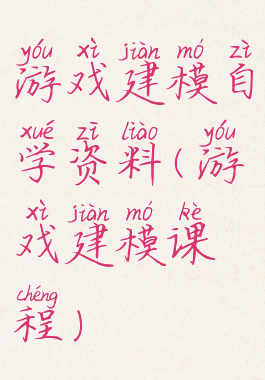 yóu xì jiàn mó zì
游戏建模自
xué zī liào yóu
学资料(游
xì jiàn mó kè
戏建模课
chéng
程)